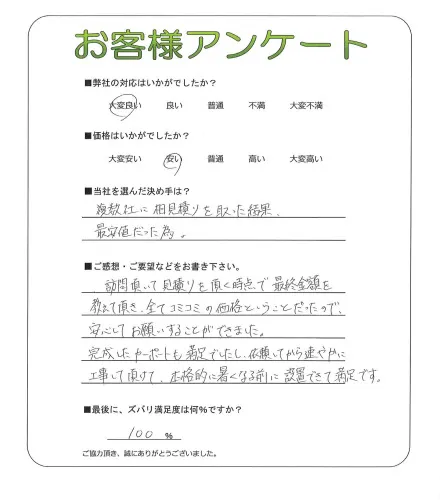 お客様アンケート
■弊社の対応はいかがでしたか？
大変良い 良い 普通 不満 大変不満
■価格はいかがでしたか？
大変安い 安い 普通 高い 大変高い
■当社を選んだ決め手は？
複数社に相見積りを取った結果、
最安値だった為。
■ご感想・ご要望などをお書き下さい。
訪問頂いて見積りを頂く時点で最終金額を
教えて頂き、全てコミコミの価格ということだったので、
安心してお願いすることができました。
完成したカーポートも満足でしたし、依頼してから速やかに
工事して頂けて、本格的に暑くなる前に設置できて満足です。
■最後に、ズバリ満足度は何％ですか？
100 %
ご協力頂き、誠にありがとうございました。